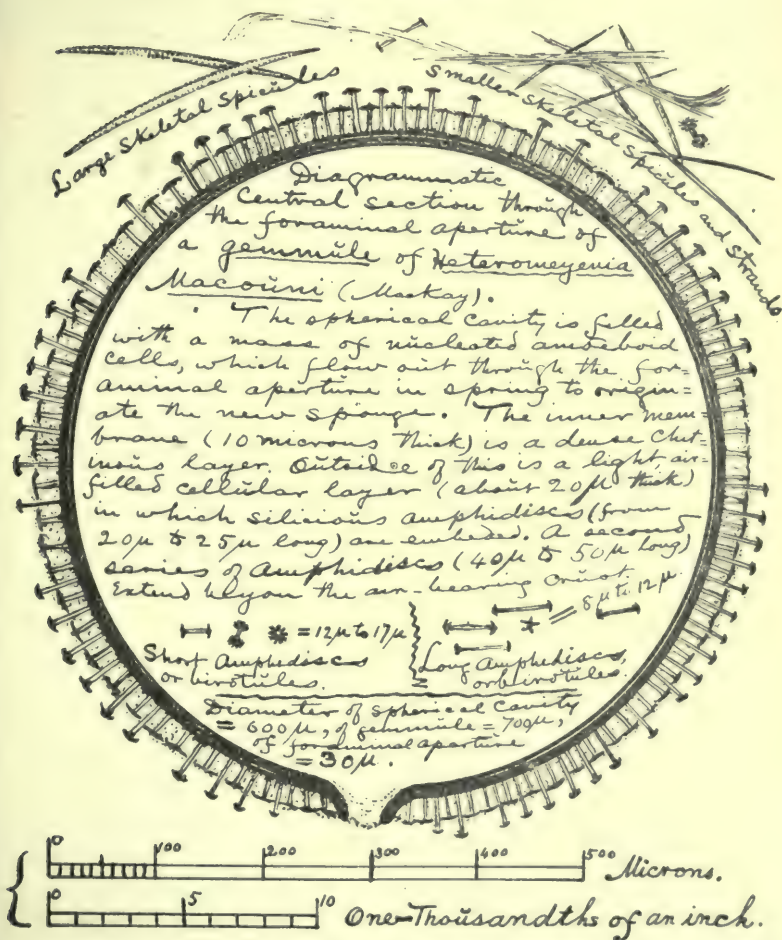 Large Skeletal Spicules
Smaller Skeletal Spicules and Strands
Diagrammatic
Central section through
the foraminal aperture of
a gemmule of Heteromeyenia
Macouni (MacKay).
The spherical cavity is filled
with a mass of nucleated amoeboid
cells, which flow out through the for=
aminal aperture in spring to origin=
ate the new sponge. The inner mem=
brane (10 microns thick) is a dense chit=
inous layer. Outside of this is a light air-
filled cellular layer (about 20µ thick)
in which silicious amphidiscs (from
20µ to 25µ long) are embeded. A second
series of Amphidiscs (40µ to 50µ long)
Extend beyon the air-bearing crust.
= 12µ to 17µ
= 8µ to 12µ
Short Amphediscs
or birotules.
Long Amphediscs,
or birotules.
Diameter of spherical cavity
= 600µ, of gemmule = 700µ,
of foraminal aperture
= 30µ.
0 100 200 300 400 500 Microns.
0 5 10 One-Thousandths of an inch.